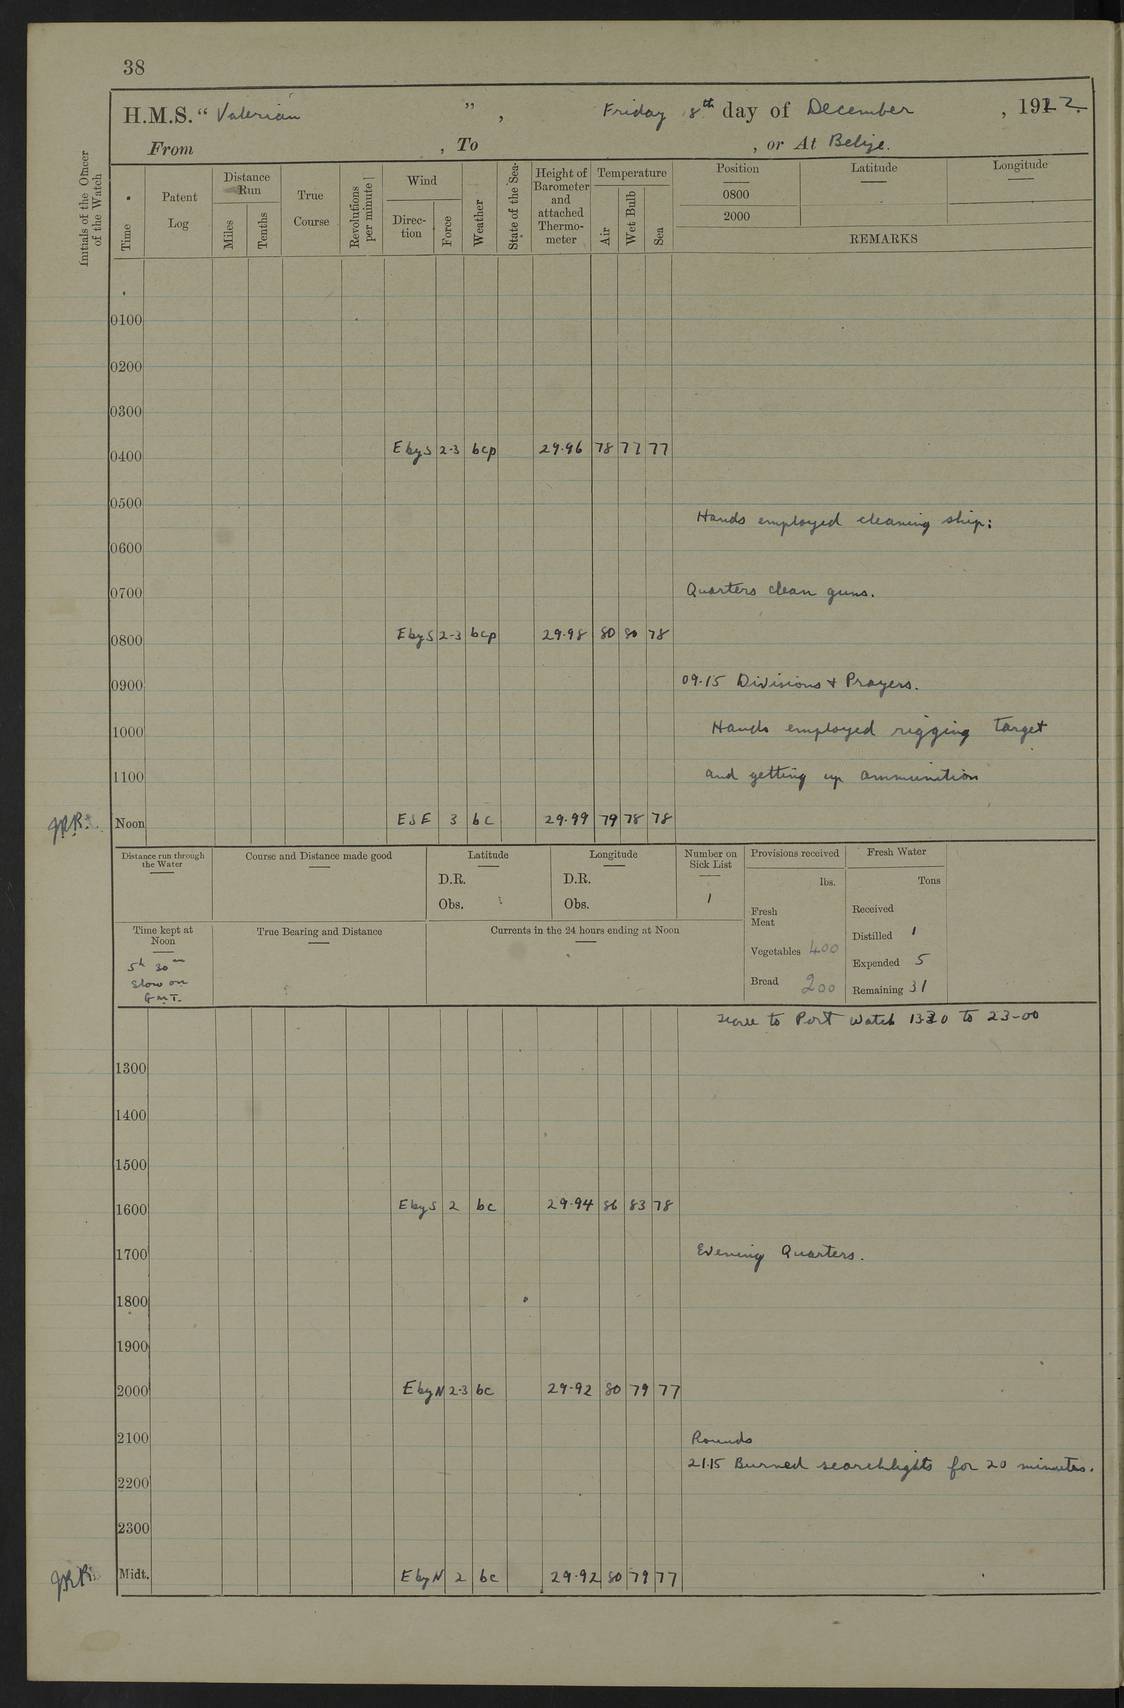 38
H.M.S. “ Valerian ” , Friday 8th day of December , 1922.
From , To , or At Belize.
Initials of the Officer of the Watch
Time
Patent Log
Distance Run
Miles
Tenths
True Course
Revolutions per minute
Wind
Direc-tion
Force
Weather
State of the Sea
Height of Barometer and attached Thermo-meter
Temperature
Air
Wet Bulb
Sea
Position
Latitude
Longitude
0800
2000
REMARKS
0100
0200
0300
0400 E by S 2-3 bcp 29.96 78 77 77
0500
Hands employed cleaning ship:
0600
0700 Quarters clean guns.
0800 E by S 2-3 bcp 29.98 80 80 78
0900 09.15 Divisions & Prayers.
1000 Hands employed rigging target
1100 and getting up ammunition
Noon ESE 3 bc 29.99 79 78 78
Distance run through the Water
Course and Distance made good
Latitude
D.R.
Obs.
Longitude
D.R.
Obs.
Number on Sick List
1
Provisions received
lbs.
Fresh Meat
Vegetables 400
Bread 200
Fresh Water
Tons
Received
Distilled 1
Expended 5
Remaining 31
Time kept at Noon
5h 30m
Slow on
G.M.T.
True Bearing and Distance
Currents in the 24 hours ending at Noon
Leave to Port Watch 1330 to 23-00
1300
1400
1500
1600 E by S 2 bc 29.94 86 83 78
1700 Evening Quarters.
1800
1900
2000 E by N 2-3 bc 29.92 80 79 77
2100 Rounds
21.15 Burned searchlights for 20 minutes.
2200
2300
Midt. E by N 2 bc 29.92 80 79 77